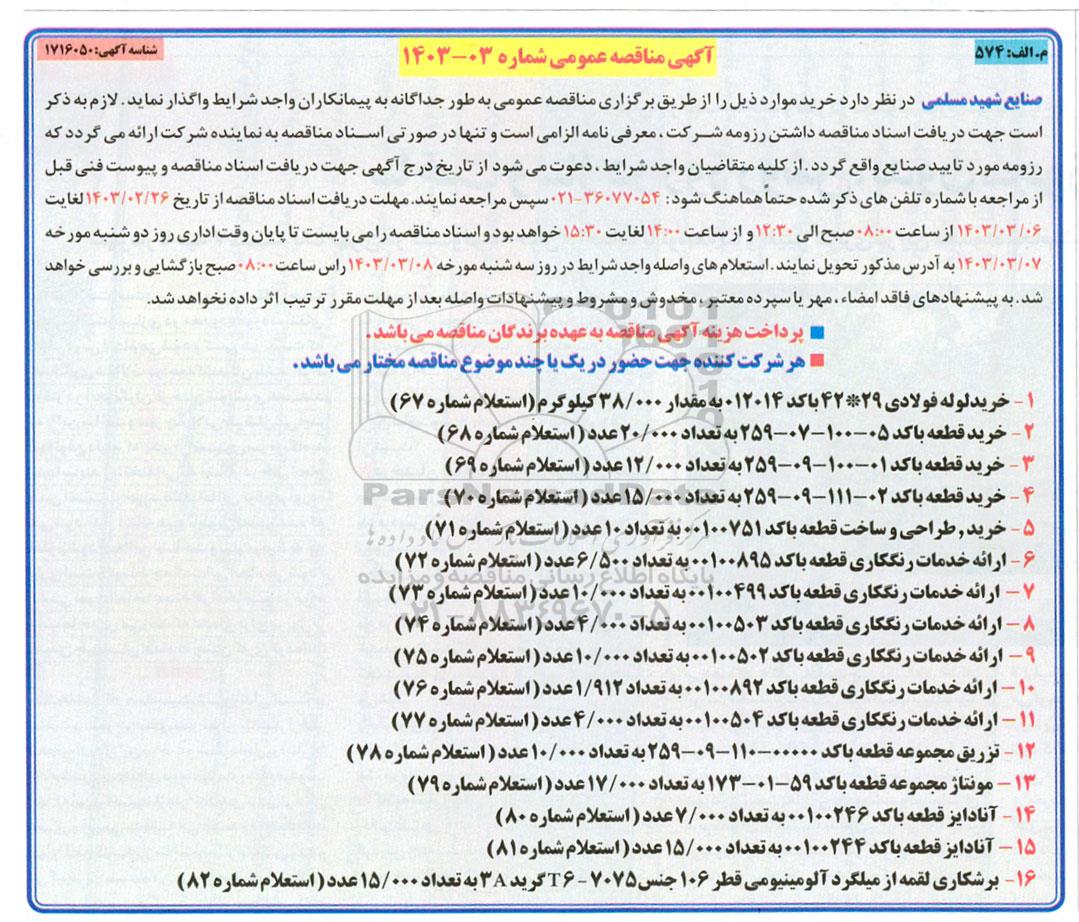 م.الف: ۵۷۴
آگهی مناقصه عمومی شماره ۰۳-۱۴۰۳
شناسه آگهی: ۱۷۱۶۰۵۰
صنایع شهید مسلمی در نظر دارد خرید موارد ذیل را از طریق برگزاری مناقصه عمومی به طور جداگانه به پیمانکاران واجد شرایط واگذار نماید. لازم به ذکر
است جهت دریافت اسناد مناقصه داشتن رزومه شرکت، معرفی نامه الزامی است و تنها در صورتی اسناد مناقصه به نماینده شرکت ارائه می گردد که
رزومه مورد تایید صنایع واقع گردد. از کلیه متقاضیان واجد شرایط، دعوت می شود از تاریخ درج آگهی جهت دریافت اسناد مناقصه و پیوست فنی قبل
از مراجعه با شماره تلفن های ذکر شده حتماً هماهنگ شود: ۳۶۰۷۷۰۵۴-۰۲۱ سپس مراجعه نمایند. مهلت دریافت اسناد مناقصه از تاریخ ۱۴۰۳/۰۲/۲۶ لغایت
۱۴۰۳/۰۳/۰۶ از ساعت ۰۸:۰۰ صبح الی ۱۲:۳۰ و از ساعت ۱۴:۰۰ لغایت ۱۵:۳۰ خواهد بود و اسناد مناقصه را می بایست تا پایان وقت اداری روز دو شنبه مورخه
۱۴۰۳/۰۳/۰۷ به آدرس مذکور تحویل نمایند. استعلام های واصله واجد شرایط در روز سه شنبه مورخه ۱۴۰۳/۰۳/۰۸ راس ساعت ۰۸:۰۰ صبح بازگشایی و بررسی خواهد
شد. به پیشنهادهای فاقد امضاء، مهر یا سپرده معتبر، مخدوش و مشروط و پیشنهادات واصله بعد از مهلت مقرر ترتیب اثر داده نخواهد شد.
پرداخت هزینه آگهی مناقصه به عهده برندگان مناقصه می باشد.
هر شرکت کننده جهت حضور در یک یا چند موضوع مناقصه مختار می باشد.
۱- خرید لوله فولادی ۲۹*۴۲ با کد ۰۱۲۰۱۴ به مقدار ۳۸/۰۰۰ کیلوگرم (استعلام شماره ۶۷)
۲- خرید قطعه با کد ۰۵-۱۰۰-۰۷-۲۵۹ به تعداد ۲۰/۰۰۰ عدد (استعلام شماره ۶۸)
۳- خرید قطعه با کد ۰۱-۱۰۰-۰۹-۲۵۹ به تعداد ۱۲/۰۰۰ عدد (استعلام شماره ۶۹)
۴- خرید قطعه با کد ۰۲-۱۱۱-۰۹-۲۵۹ به تعداد ۱۵/۰۰۰ عدد (استعلام شماره ۷۰)
۵- خرید, طراحی و ساخت قطعه با کد ۰۰۱۰۰۷۵۱ به تعداد ۱۰ عدد (استعلام شماره ۷۱)
۶- ارائه خدمات رنگکاری قطعه با کد ۰۰۱۰۰۸۹۵ به تعداد ۶/۵۰۰ عدد (استعلام شماره ۷۲)
۷- ارائه خدمات رنگکاری قطعه با کد ۰۰۱۰۰۴۹۹ به تعداد ۱۰/۰۰۰ عدد (استعلام شماره ۷۳)
۸- ارائه خدمات رنگکاری قطعه با کد ۰۰۱۰۰۵۰۳ به تعداد ۴/۰۰۰ عدد (استعلام شماره ۷۴)
۹- ارائه خدمات رنگکاری قطعه با کد ۰۰۱۰۰۵۰۲ به تعداد ۱۰/۰۰۰ عدد (استعلام شماره ۷۵)
۱۰- ارائه خدمات رنگکاری قطعه با کد ۰۰۱۰۰۸۹۲ به تعداد ۱/۹۱۲ عدد (استعلام شماره ۷۶)
۱۱- ارائه خدمات رنگکاری قطعه با کد ۰۰۱۰۰۵۰۴ به تعداد ۴/۰۰۰ عدد (استعلام شماره ۷۷)
۱۲- تزریق مجموعه قطعه با کد ۰۰۰۰۰-۱۱۰-۰۹-۲۵۹ به تعداد ۱۰/۰۰۰ عدد (استعلام شماره ۷۸)
۱۳- مونتاژ مجموعه قطعه با کد ۵۹-۰۱-۱۷۳ به تعداد ۱۷/۰۰۰ عدد (استعلام شماره ۷۹)
۱۴- آنادایز قطعه با کد ۰۰۱۰۰۲۴۶ به تعداد ۷/۰۰۰ عدد (استعلام شماره ۸۰)
۱۵- آنادایز قطعه با کد ۰۰۱۰۰۲۴۴ به تعداد ۱۵/۰۰۰ عدد (استعلام شماره ۸۱)
۱۶- برشکاری لقمه از میلگرد آلومینیومی قطر ۱۰۶ جنس ۷۰۷۵-T۶ گرید ۳A به تعداد ۱۵/۰۰۰ عدد (استعلام شماره ۸۲)
ParsNamadData
پایگاه اطلاع رسانی مناقصه و مزایده
۰۲۱-۸۸۳۴۹۶۷۰-۵